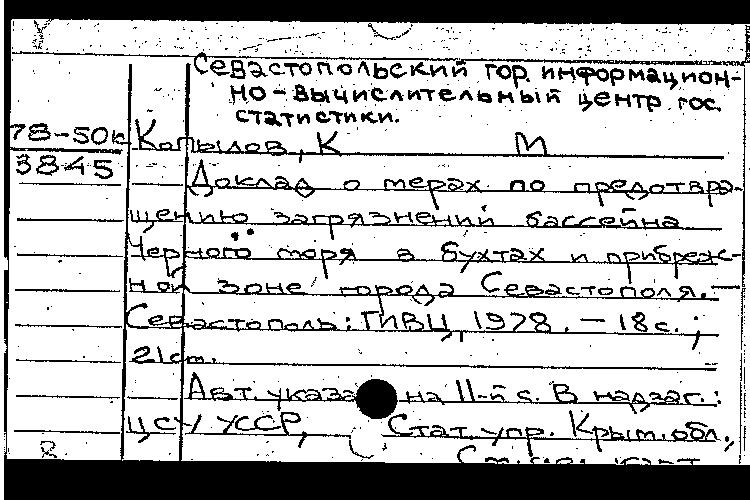 Севастопольский гор. информацион-
но-вычислительный центр гос.
статистики.
78-50к Копылов, К М
3845 Доклад о мерах по предотвра-
щению загрязнений бассейна
Черного моря в бухтах и прибреж-
ной зоне города Севастополя.—
Севастополь: ГИВЦ, 1978. — 18 с.;
21 см.
Авт. указан на 11-й с. В надзаг.:
ЦСУ УССР, Стат. упр. Крым. обл.,